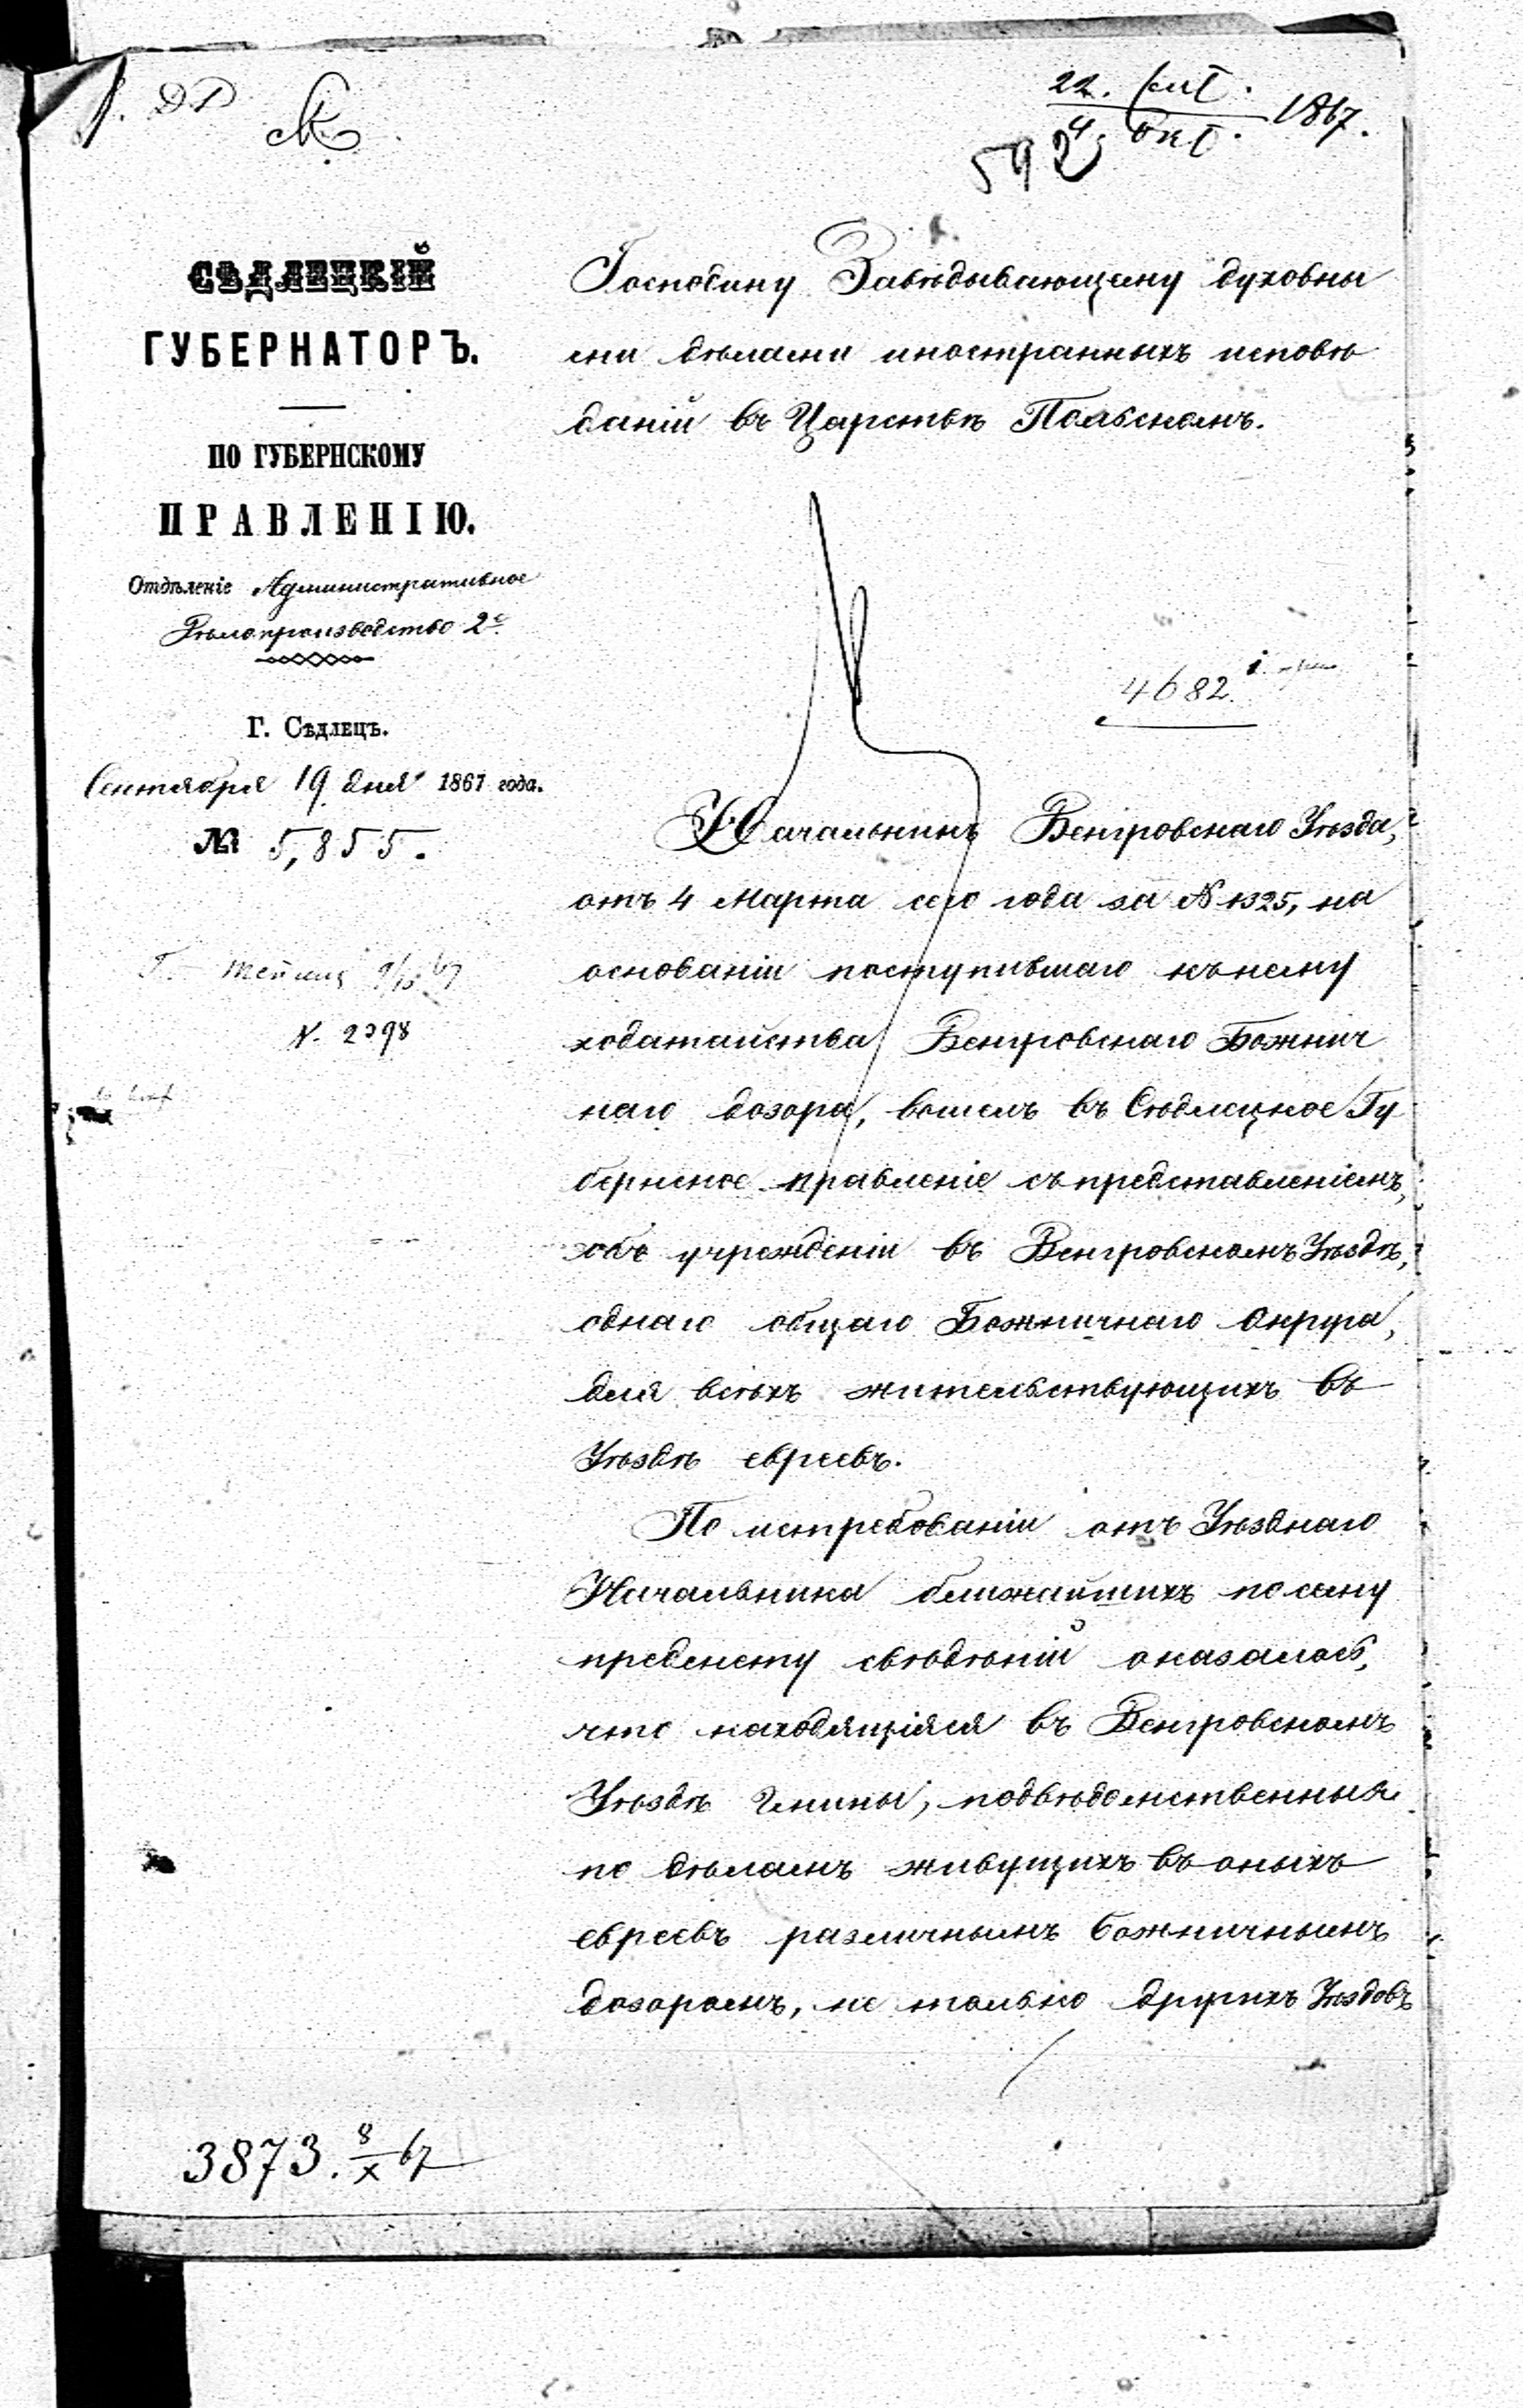 22. Сент.
4. Окт. 1867.
592
СѢДЛЕЦКІЙ
ГУБЕРНАТОРЪ.
ПО ГУБЕРНСКОМУ
ПРАВЛЕНІЮ.
Отдѣленіе Административное
Дѣлопроизводство 2е
Г. Сѣдлецъ.
Сентября 19 дня 1867 года.
№ 5,855.
N. 2398
Господину Завѣдывающему духовны
ми дѣлами иностранныхъ исповѣ
даній въ Царствѣ Польскомъ.
4682
Начальникъ Венгровскаго Уѣзда,
отъ 4 Марта сего года за N 1325, на
основаніи поступившаго къ нему
ходатайства Венгровскаго Божнич
наго дозора, вошелъ въ Сѣдлецкое Гу
бернское правленіе съ представленіемъ,
объ учрежденіи въ Венгровскомъ Уѣздѣ,
однаго общаго Божничнаго Округа,
для всѣхъ жительствующихъ въ
Уѣздѣ евреевъ.
По истребованіи отъ Уѣзднаго
Начальника ближайшихъ по сему
предмету свѣдѣній оказалось,
что находящіяся въ Венгровскомъ
Уѣздѣ Гмины, подвѣдомственныя
по дѣламъ живущихъ въ оныхъ
евреевъ различнымъ божничнымъ
дозорамъ, не только другихъ Уѣздовъ
3873. 8/X 67